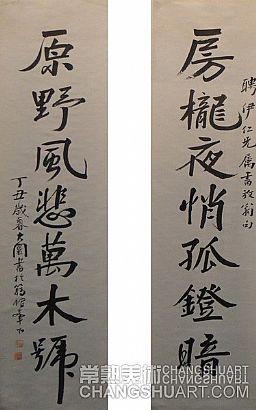 聘伊仁先屬書放翁句
房櫳夜悄孤鐙暗
原野風悲萬木號
丁丑歲暮大闌書於
常熟美術
CHANGSHUART
CHANGSHUART.COM